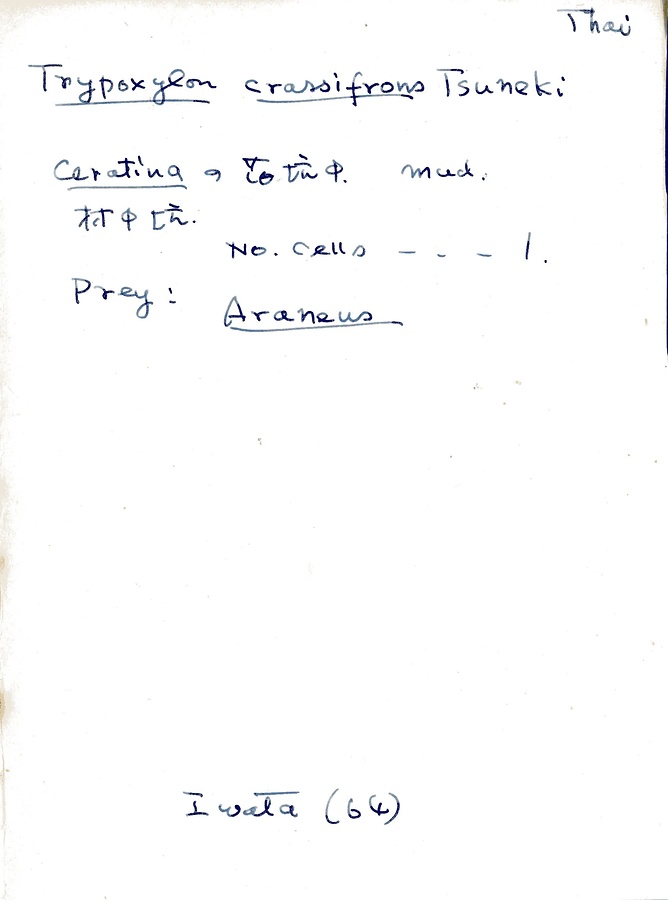 Thai
Trypoxylon crassifrons Tsuneki
Ceratina の 中. mud.
材中
No. cells - - - 1.
Prey:
Araneus
Iwata (64)